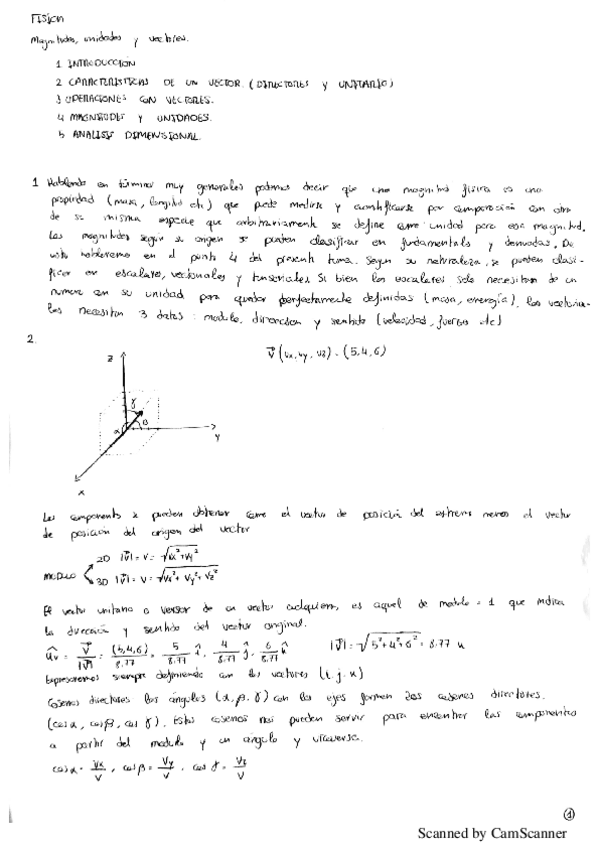 FISICA
Magnitudes, unidades y vectores.
1 INTRODUCCION
2 CARACTERISTICAS DE UN VECTOR. (DIRECTORES Y UNITARIO)
3 OPERACIONES CON VECTORES.
4 MAGNITUDES Y UNIDADES.
5 ANALISIS DIMENSIONAL.
1 Hablando en términos muy generales podemos decir que una magnitud física es una
propiedad (masa, longitud etc.) que puede medirse y cuantificarse por comparación con otra
de su misma especie que arbitrariamente se define como unidad para esa magnitud.
Las magnitudes según su origen se pueden clasificar en fundamentales y derivadas. De
esto hablaremos en el punto 4 del presente tema. Según su naturaleza, se pueden clasi-
ficar en escalares, vectoriales y tensoriales. Si bien los escalares solo necesitan de un
numero en su unidad para quedar perfectamente definidas (masa, energía), las vectoria-
les necesitan 3 datos: modulo, direccion y sentido (velocidad, fuerzas etc)
2.
V⃗ (vx, vy, vz) = (5,4,6)
z
γ
α β
y
x
Las componentes se pueden obtener como el vector de posición del extremo menos el vector
de posicion del origen del vector
2D |V⃗| = V = √Vx²+Vy²
MODULO
3D |V⃗| = V = √Vx²+Vy²+Vz²
El vector unitario o versor de un vector cualquiera, es aquel de modulo = 1 que indica
la dirección y sentido del vector original.
ûv = V⃗/|V⃗| = (5,4,6)/8.77 = 5/8.77 î, 4/8.77 ĵ, 6/8.77 k̂ |V⃗| = √5²+4²+6² = 8.77 u
Expresaremos siempre definiendo con los vectores (i, j, k)
Cosenos directores los ángulos (α, β, γ) con los ejes forman los cosenos directores.
(cos α, cos β, cos γ). Estos cosenos nos pueden servir para encontrar las componentes
a partir del modulo y un angulo y viceversa.
cos α = Vx/V, cos β = Vy/V, cos γ = Vz/V
1
Scanned by CamScanner